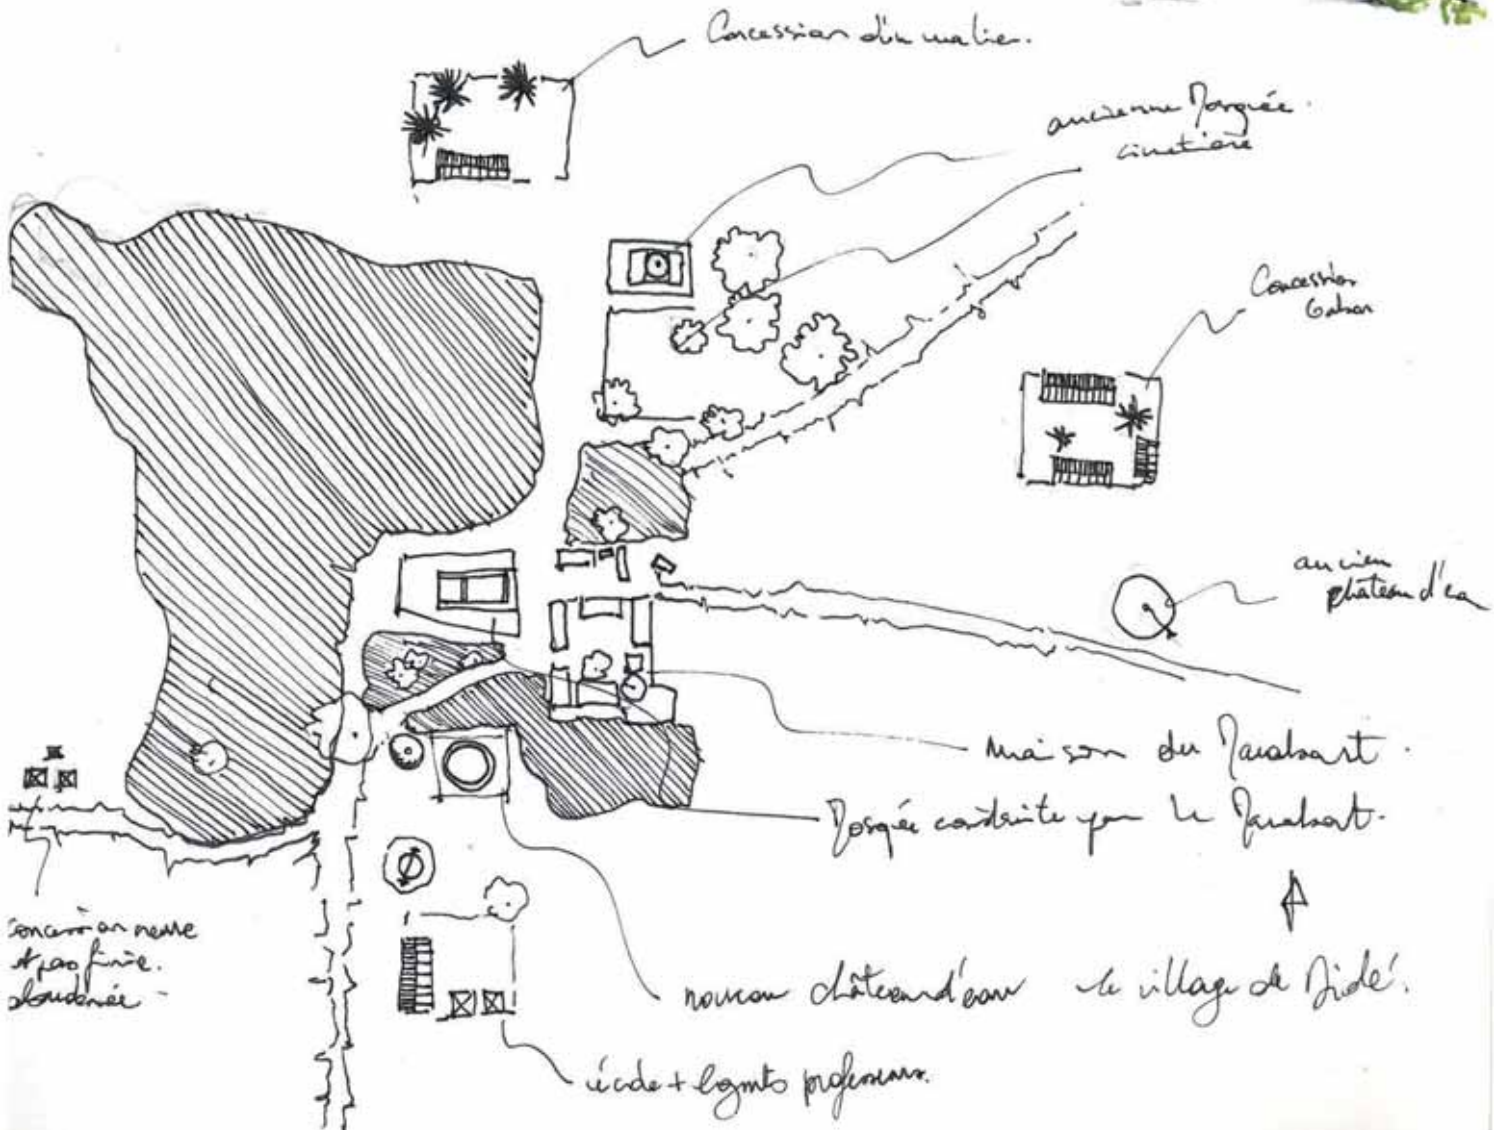 Concession d'un malien.
ancienne Mosquée.
cimetière
Concession
Gabon
ancien
château d'eau
maison du Marabout.
Mosquée construite par le Marabout.
concession neuve
et pas finie.
abandonnée
nouveau château d'eau
le village de Didé.
école + logmts professeurs.